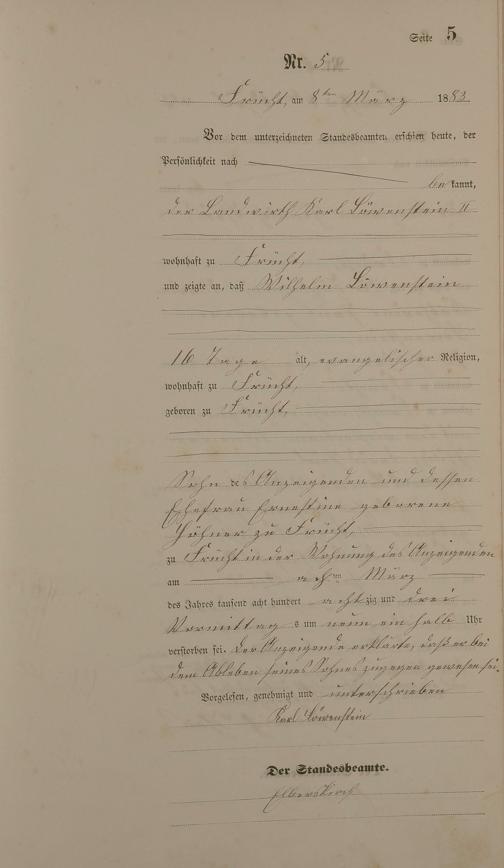 Seite 5
Nr. 5
Frücht, am 8ten März 1883
Vor dem unterzeichneten Standesbeamten erschien heute, der
Persönlichkeit nach
be kannt,
der Landwirth Karl Löwenstein II
wohnhaft zu Frücht
und zeigte an, daß Wilhelm Löwenstein
16 Tage alt, evangelischer Religion,
wohnhaft zu Frücht,
geboren zu Frücht,
Sohn des Anzeigenden und dessen
Ehefrau Ernestine geborene
Höhner zu Frücht,
zu Frücht in der Wohnung des Anzeigenden
am achten März
des Jahres tausend acht hundert achtzig und drei
Vormittags um neun ein halb Uhr
verstorben sei. Der Anzeigende erklärte, daß er bei
dem Ableben seines Sohnes zugegen gewesen sei.
Vorgelesen, genehmigt und unterschrieben
Karl Löwenstein
Der Standesbeamte.